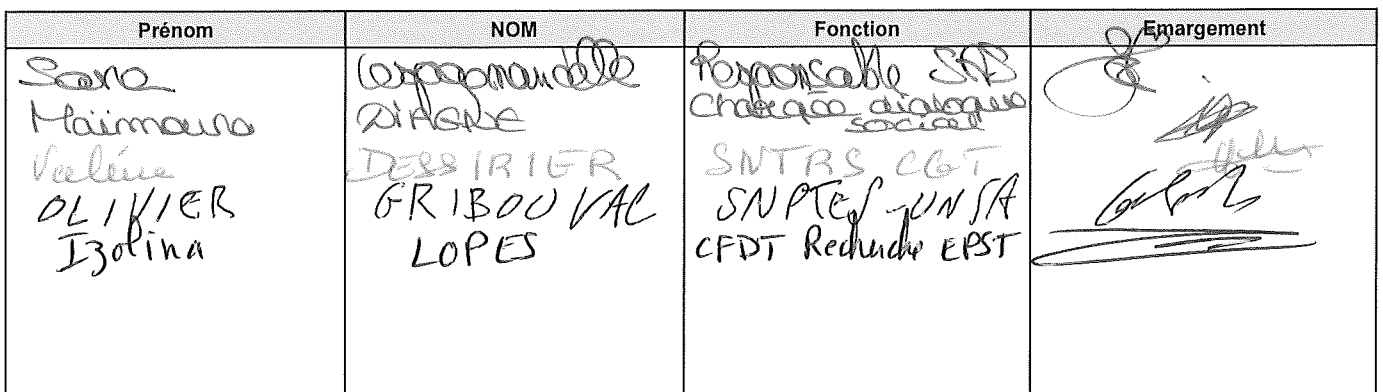 Prénom NOM Fonction Emargement
Sara Responsable SAS
Maïmouna DIAGNE Chargée dialogue
social
Valérie DESSIRIER SNTRS CGT
OLIVIER GRIBOUVAL SNPTES-UNSA
Izolina LOPES CFDT Recherche EPST